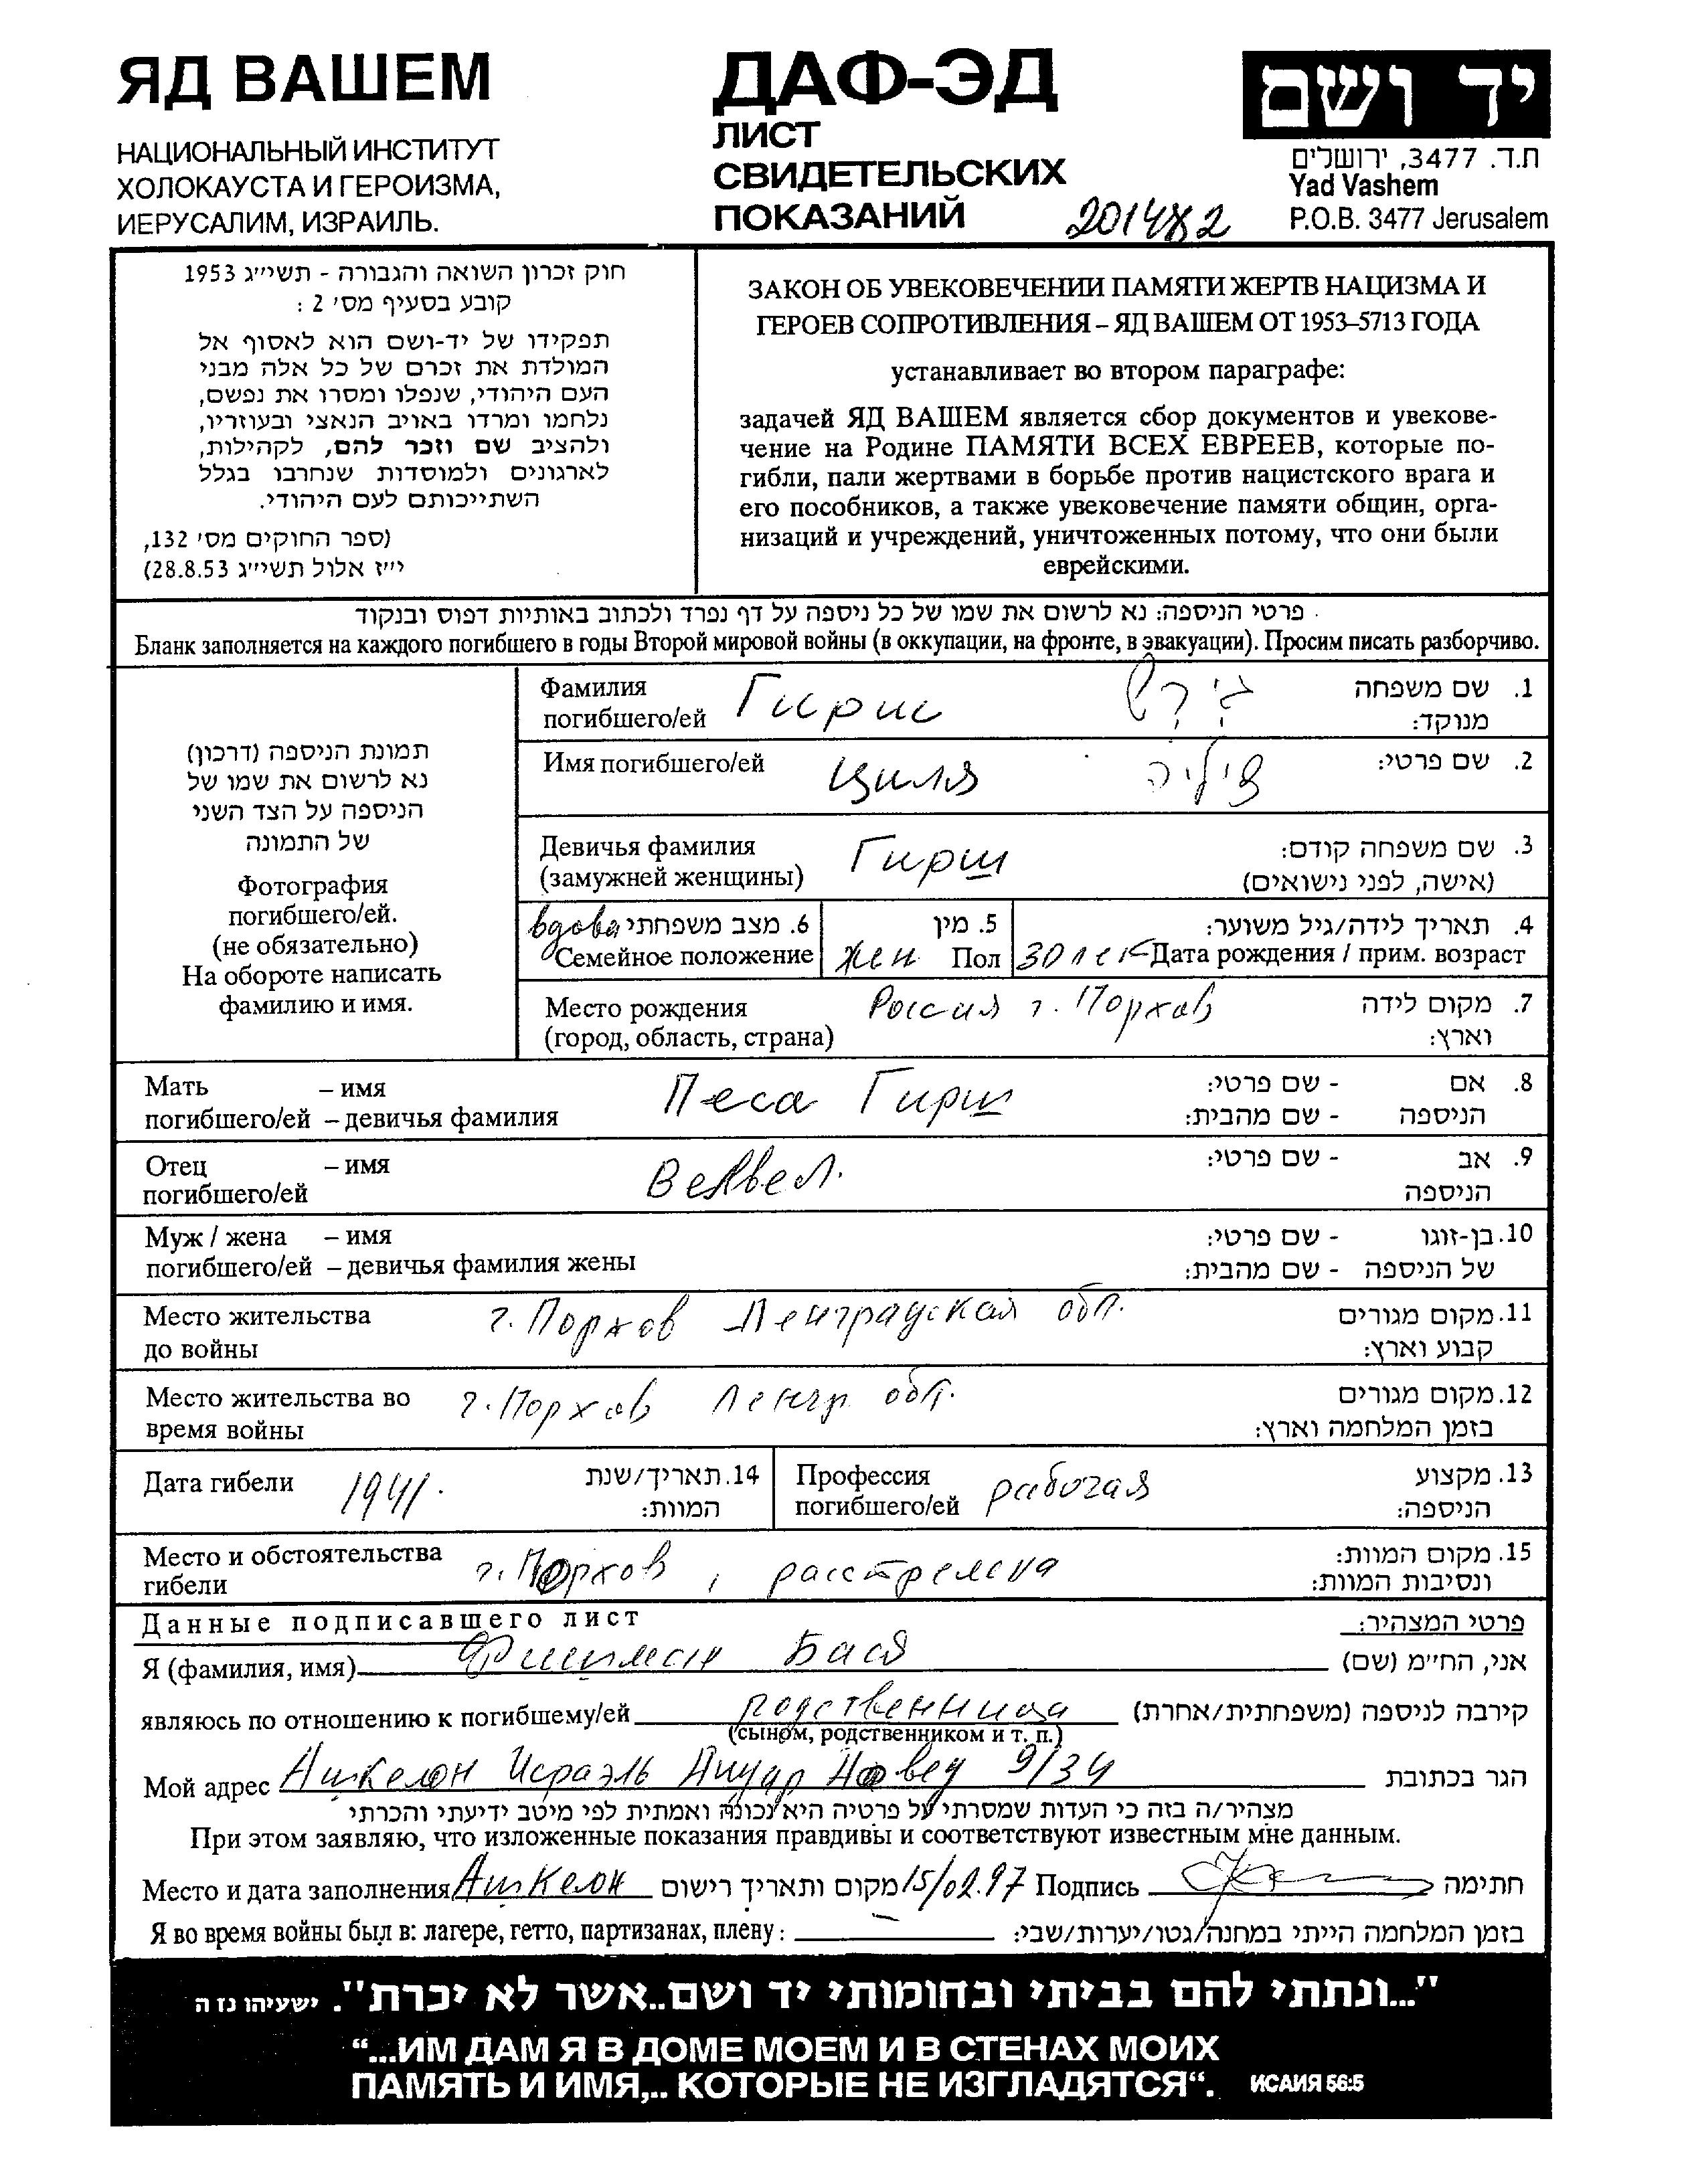 ЯД ВАШЕМ
НАЦИОНАЛЬНЫЙ ИНСТИТУТ
ХОЛОКАУСТА И ГЕРОИЗМА,
ИЕРУСАЛИМ, ИЗРАИЛЬ.
ДАФ-ЭД
ЛИСТ
СВИДЕТЕЛЬСКИХ
ПОКАЗАНИЙ
201482
יד ושם
ת.ד. 3477, ירושלים
Yad Vashem
P.O.B. 3477 Jerusalem
חוק זכרון השואה והגבורה - תשי״ג 1953
קובע בסעיף מס׳ 2 :
תפקידו של יד-ושם הוא לאסוף אל
המולדת את זכרם של כל אלה מבני
העם היהודי, שנפלו ומסרו את נפשם,
נלחמו ומרדו באויב הנאצי ובעוזריו,
ולהציב שם וזכר להם, לקהילות,
לארגונים ולמוסדות שנחרבו בגלל
השתייכותם לעם היהודי.
(ספר החוקים מס׳ 132,
י״ז אלול תשי״ג 28.8.53)
ЗАКОН ОБ УВЕКОВЕЧЕНИИ ПАМЯТИ ЖЕРТВ НАЦИЗМА И
ГЕРОЕВ СОПРОТИВЛЕНИЯ – ЯД ВАШЕМ ОТ 1953–5713 ГОДА
устанавливает во втором параграфе:
задачей ЯД ВАШЕМ является сбор документов и увекове-
чение на Родине ПАМЯТИ ВСЕХ ЕВРЕЕВ, которые по-
гибли, пали жертвами в борьбе против нацистского врага и
его пособников, а также увековечение памяти общин, орга-
низаций и учреждений, уничтоженных потому, что они были
еврейскими.
פרטי הניספה: נא לרשום את שמו של כל ניספה על דף נפרד ולכתוב באותיות דפוס ובנקוד
Бланк заполняется на каждого погибшего в годы Второй мировой войны (в оккупации, на фронте, в эвакуации). Просим писать разборчиво.
תמונת הניספה (דרכון)
נא לרשום את שמו של
הניספה על הצד השני
של התמונה
Фотография
погибшего/ей.
(не обязательно)
На обороте написать
фамилию и имя.
Фамилия
погибшего/ей Гирш גירש
1. שם משפחה
מנוקד:
Имя погибшего/ей Циля ציליה 2. שם פרטי:
Девичья фамилия
(замужней женщины) Гирш
3. שם משפחה קודם:
(אישה, לפני נישואים)
вдова 6. מצב משפחתי
Семейное положение
5. מין
жен Пол
4. תאריך לידה/גיל משוער:
30 лет Дата рождения / прим. возраст
Место рождения
(город, область, страна) Россия г. Порхов
7. מקום לידה
וארץ:
Мать – имя
погибшего/ей – девичья фамилия Песа Гирш
8. אם - שם פרטי:
הניספה - שם מהבית:
Отец – имя
погибшего/ей Велвел.
9. אב - שם פרטי:
הניספה
Муж / жена – имя
погибшего/ей – девичья фамилия жены
10. בן-זוגו - שם פרטי:
של הניספה - שם מהבית:
Место жительства
до войны г. Порхов Ленградская обл.
11. מקום מגורים
קבוע וארץ:
Место жительства во
время войны г. Порхов Ленгр. обл.
12. מקום מגורים
בזמן המלחמה וארץ:
Дата гибели 1941.
14. תאריך/שנת
המוות:
Профессия
погибшего/ей рабочая
13. מקצוע
הניספה:
Место и обстоятельства
гибели г. Порхов, расстреляна
15. מקום המוות:
ונסיבות המוות:
Данные подписавшего лист פרטי המצהיר:
Я (фамилия, имя) Фишман Бася אני, הח״מ (שם)
являюсь по отношению к погибшему/ей родственница קירבה לניספה (משפחתית/אחרת)
(сыном, родственником и т. п.)
Мой адрес Ашкелон Исраэль 9/34 הגר בכתובת
מצהיר/ה בזה כי העדות שמסרתי על פרטיה היא נכונה ואמתית לפי מיטב ידיעתי והכרתי
При этом заявляю, что изложенные показания правдивы и соответствуют известным мне данным.
Место и дата заполнения Ашкелон מקום ותאריך רישום 15/02.97 Подпись חתימה
Я во время войны был в: лагере, гетто, партизанах, плену: בזמן המלחמה הייתי במחנה/גטו/יערות/שבי:
"...ונתתי להם בביתי ובחומותי יד ושם..אשר לא יכרת". ישעיהו נז ה
“...ИМ ДАМ Я В ДОМЕ МОЕМ И В СТЕНАХ МОИХ
ПАМЯТЬ И ИМЯ,.. КОТОРЫЕ НЕ ИЗГЛАДЯТСЯ“. ИСАИЯ 56:5